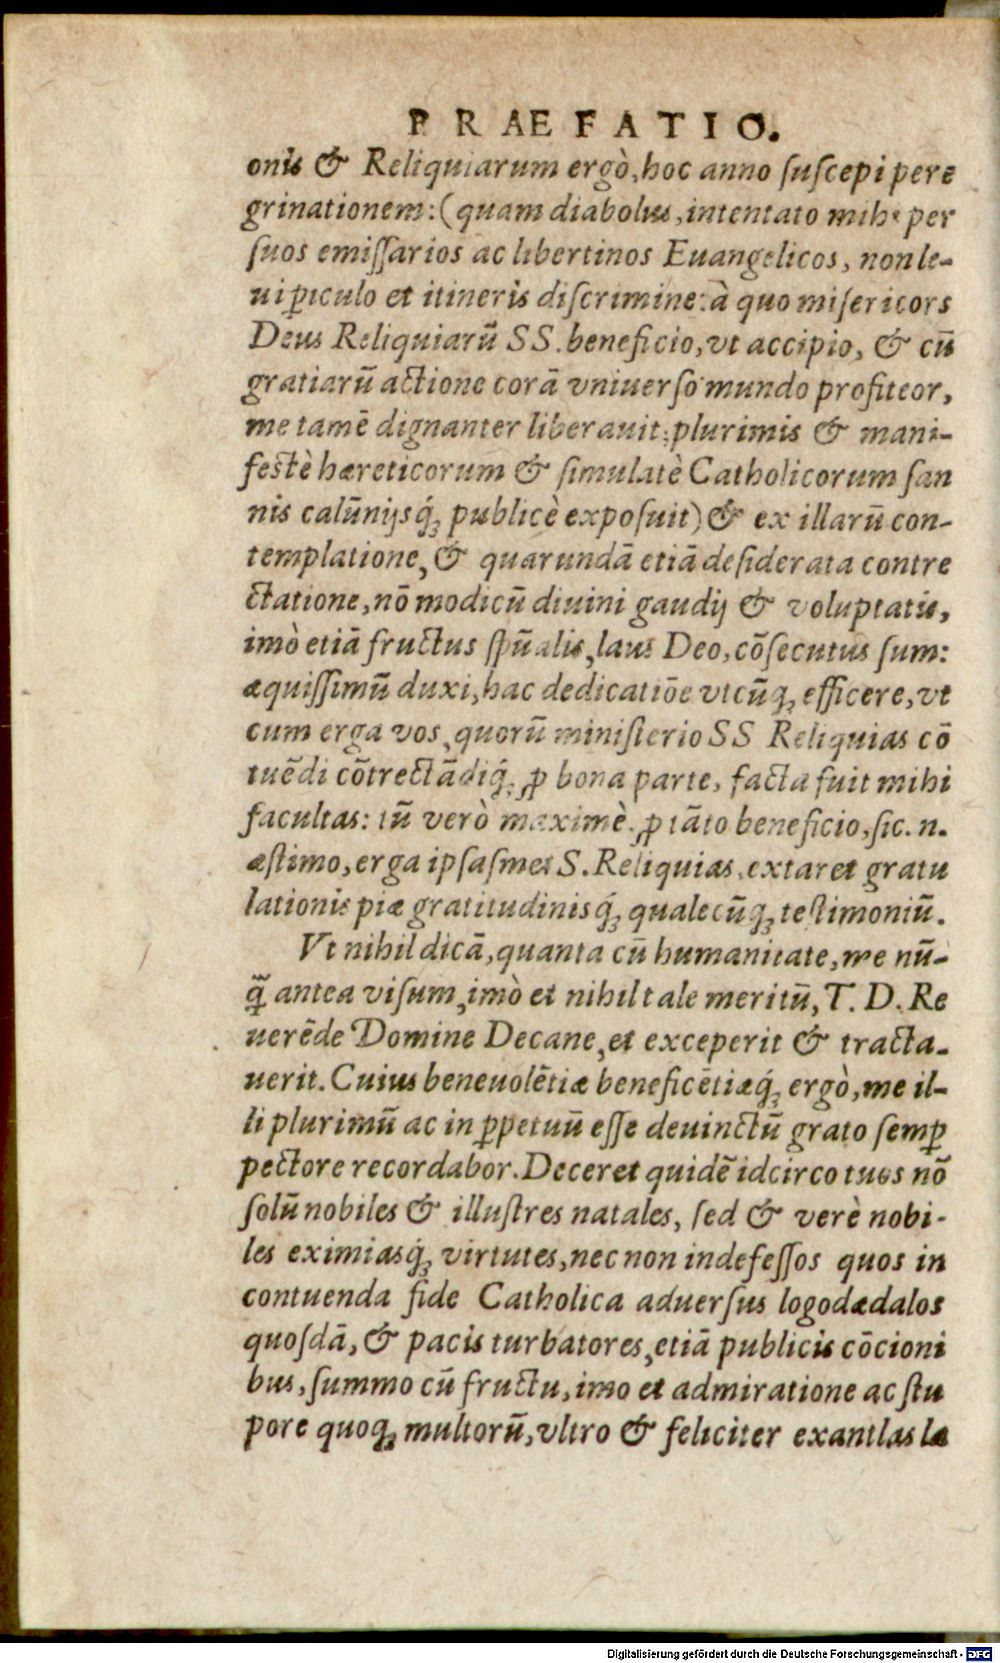 PRAEFATIO.
onis & Reliquiarum ergò, hoc anno ſuſcepi pere
grinationem: (quam diabolus, intentato mihi per
ſuos emiſſarios ac libertinos Euangelicos, non le-
ui ꝑiculo et itineris diſcrimine: à quo miſericors
Deus Reliquiarũ SS. beneficio, vt accipio, & cũ
gratiarũ actione corã vniuerſo mundo profiteor,
me tamẽ dignanter liberauit: plurimis & mani-
feſtè hæreticorum & ſimulatè Catholicorum ſan
nis calũnijsq́ꝫ publicè expoſuit) & ex illarũ con-
templatione, & quarundã etiã deſiderata contre
ctatione, nõ modicũ diuini gaudij & voluptatis,
imò etiã fructus ſpũalis, laus Deo, cõſecutus ſum:
æquiſſimũ duxi, hac dedicatiõe vtcũqꝫ efficere, vt
cum erga vos, quorũ miniſterio SS Reliquias cõ
tuẽdi cõtrectãdiq́ꝫ ꝓ bona parte, facta fuit mihi
facultas: tũ verò maximè ꝓ tãto beneficio, ſic. n.
æſtimo, erga ipſaſmet S. Reliquias, extaret gratu
lationis piæ gratitudinisq́ꝫ qualecũqꝫ teſtimoniũ.
Vt nihil dicã, quanta cũ humanitate, me nũ-
q̃ꝫ antea viſum, imò et nihil tale meritũ, T. D. Re
uerẽde Domine Decane, et exceperit & tracta-
uerit. Cuius beneuolẽtiæ beneficẽtiæq́ꝫ ergò, me il-
li plurimũ ac in ꝑpetuũ eſſe deuinctũ grato ſemꝑ
pectore recordabor. Deceret quidẽ idcirco tuos nõ
ſolũ nobiles & illuſtres natales, ſed & verè nobi-
les eximiasq́ꝫ virtutes, nec non indefeſſos quos in
contuenda fide Catholica aduerſus logodædalos
quoſdã, & pacis turbatores, etiã publicis cõcioni
bus, ſummo cũ fructu, imo et admiratione ac ſtu
pore quoqꝫ multorũ, vltro & feliciter exantlas la
Digitalisierung gefördert durch die Deutsche Forschungsgemeinschaft - DFG